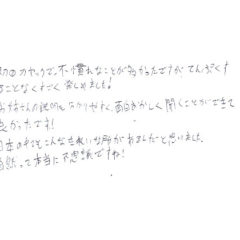 初のカヤックで不慣れなことが多かったですが てんぷくす
ことなくすごく楽しめました!
お姉さんの説明も分かりやすく、面白おかしく聞くことができて
良かったです!
日本の中でもこんなきれいな所がありました と思いました。
自然って本当に不思議ですね!